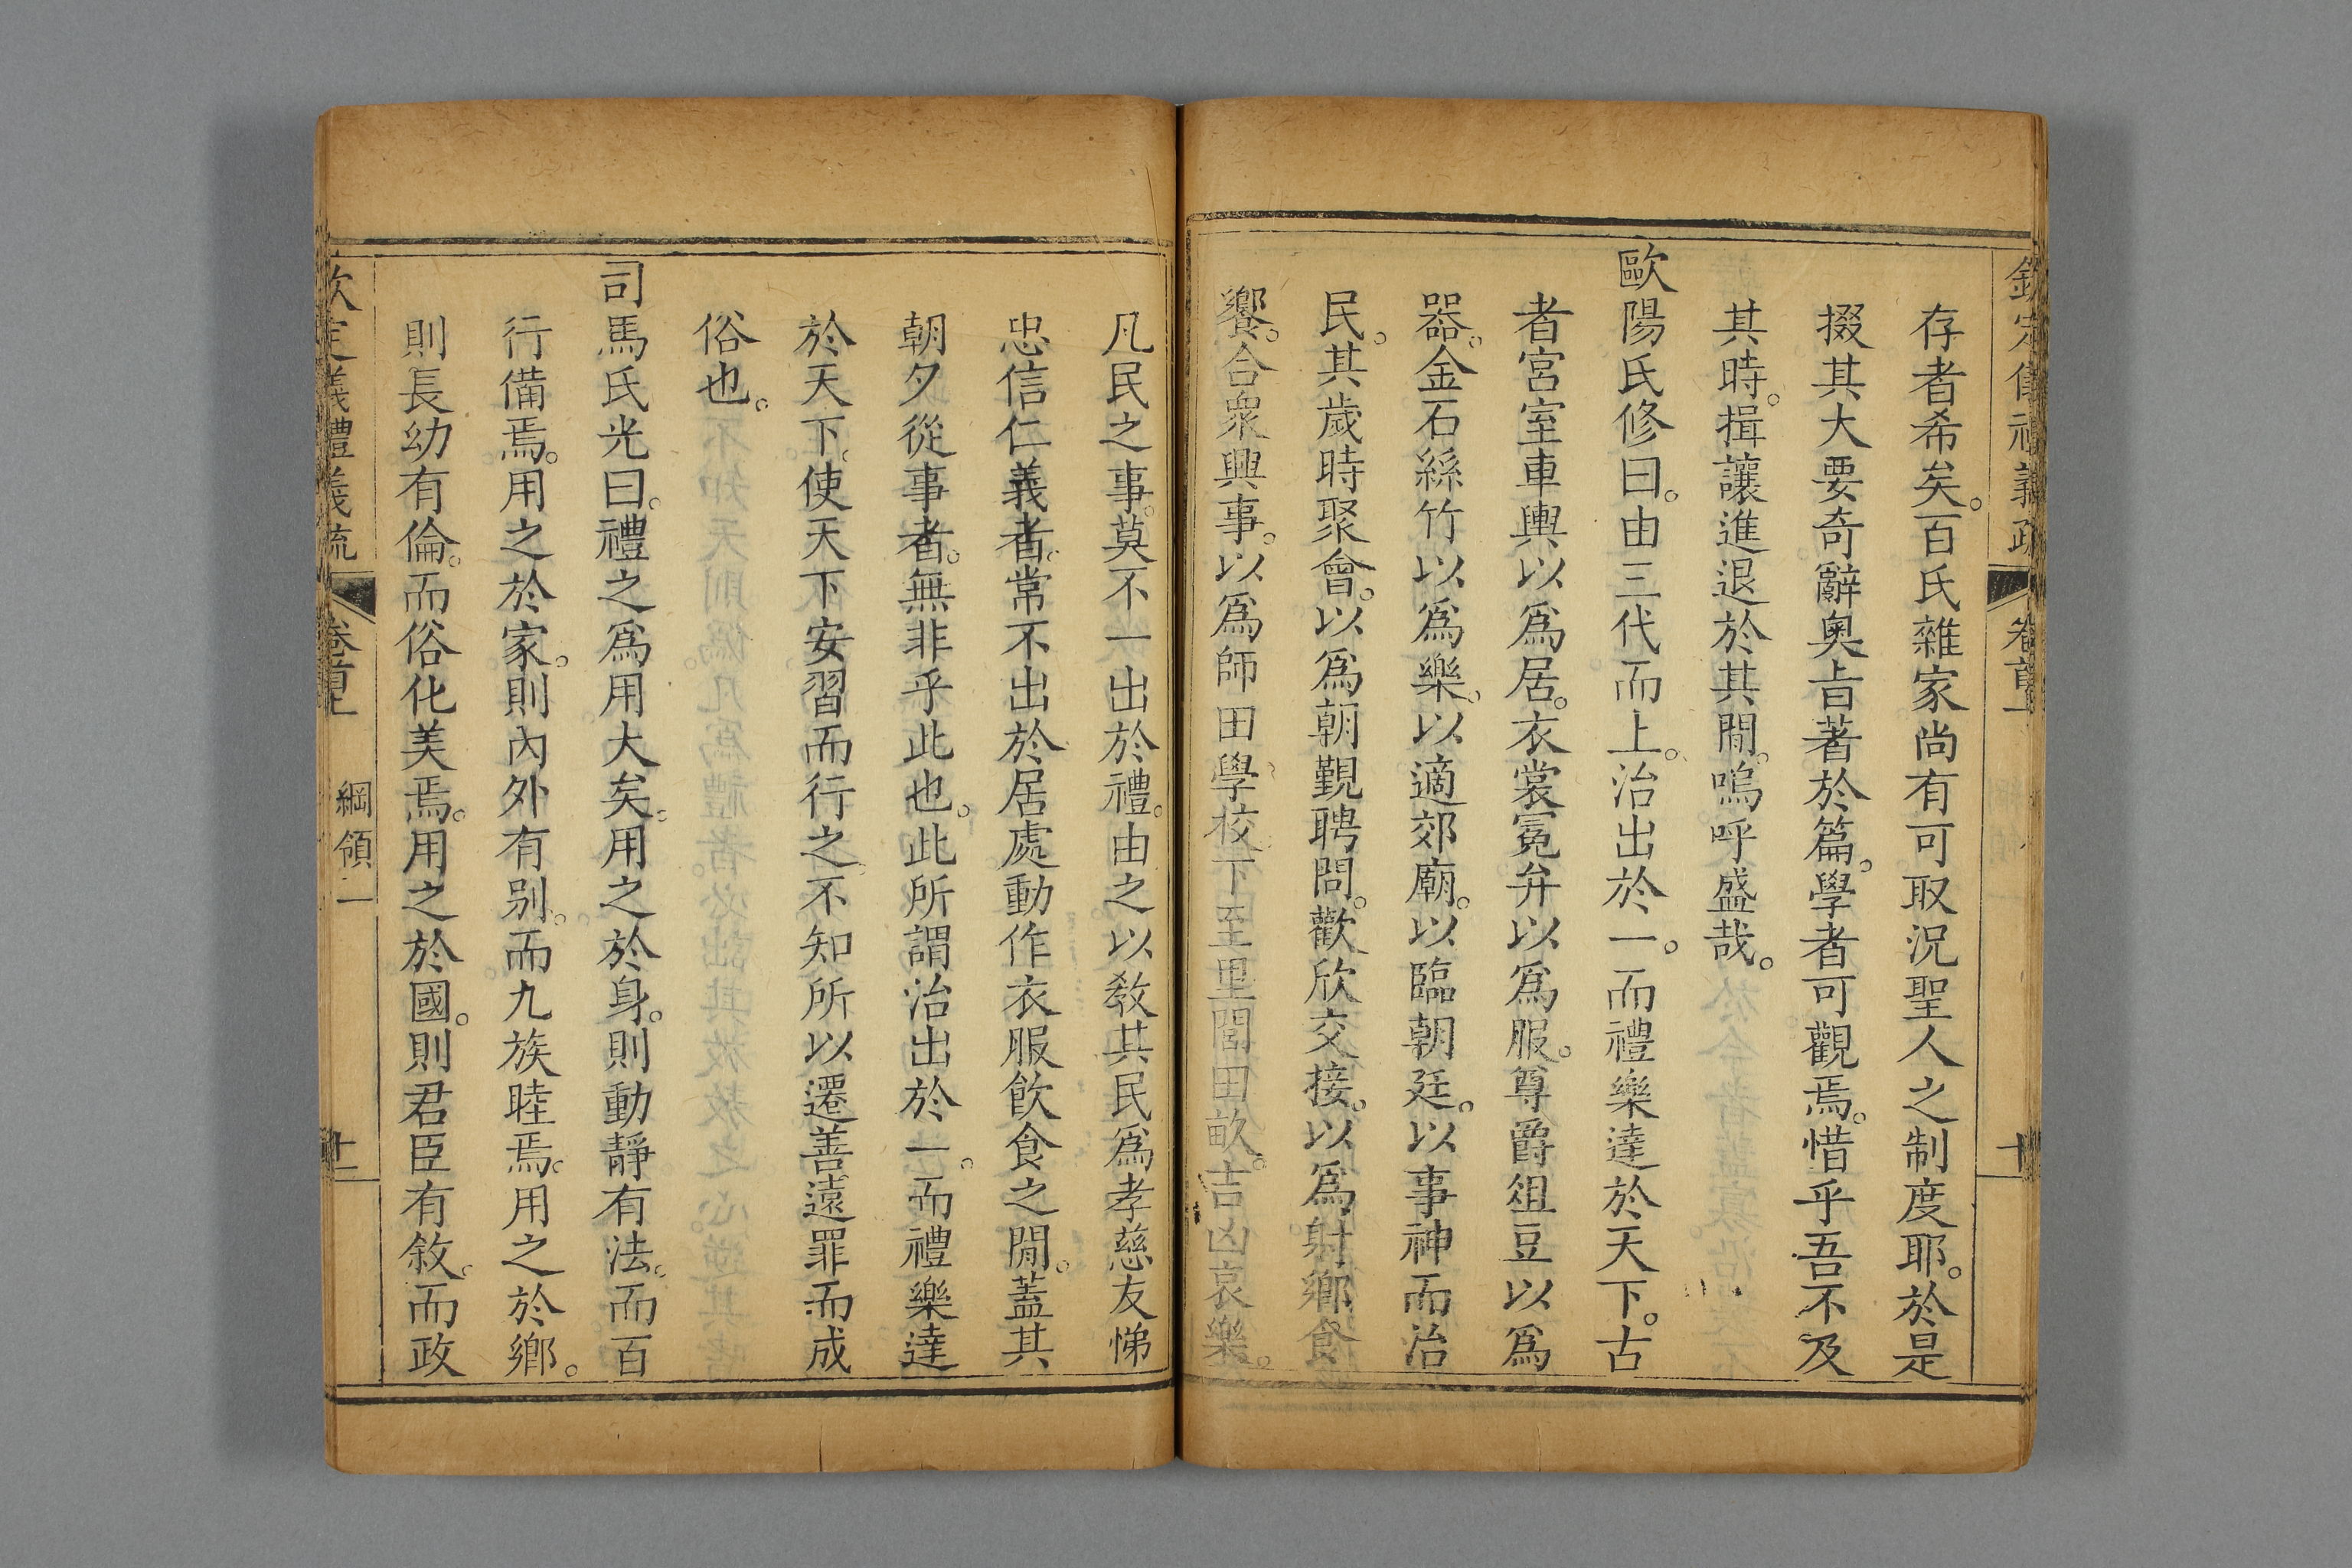 欽定儀禮義疏 卷首上 十
存者希矣。百氏雜家尚有可取況聖人之制度耶。於是
掇其大要奇辭奧旨著於篇。學者可觀焉。惜乎吾不及
其時。揖讓進退於其閒。嗚呼盛哉。
歐陽氏修曰。由三代而上。治出於一。而禮樂達於天下。古
者宮室車輿以爲居。衣裳冕弁以爲服。尊爵俎豆以爲
器。金石絲竹以爲樂。以適郊廟。以臨朝廷。以事神而治
民。其歲時聚會。以爲朝覲聘問。歡欣交接。以爲射鄉食
饗。合衆興事。以爲師田學校。下至里閭田畝。吉凶哀樂。
凡民之事。莫不一出於禮。由之以敎其民爲孝慈友悌
忠信仁義者。常不出於居處動作衣服飲食之閒。蓋其
朝夕從事者。無非乎此也。此所謂治出於一。而禮樂達
於天下。使天下安習而行之。不知所以遷善遠罪而成
俗也。
司馬氏光曰。禮之爲用大矣。用之於身。則動靜有法。而百
行備焉。用之於家。則內外有別。而九族睦焉。用之於鄉。
則長幼有倫。而俗化美焉。用之於國。則君臣有敘。而政
欽定儀禮義疏 卷首上 綱領一 十一